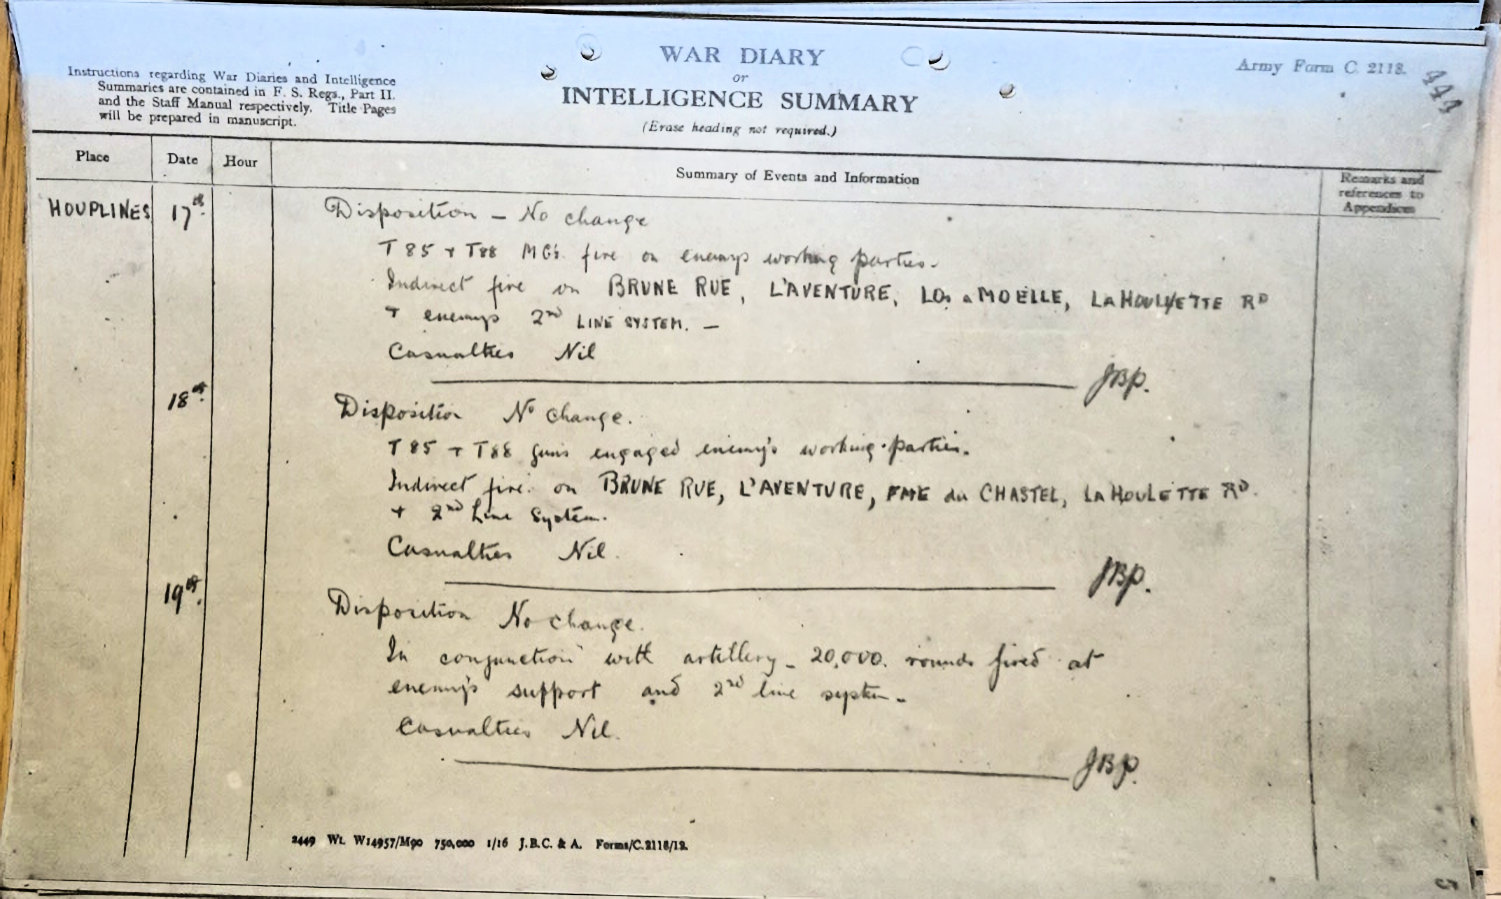 Instructions regarding War Diaries and Intelligence
Summaries are contained in F. S. Regs., Part II.
and the Staff Manual respectively. Title Pages
will be prepared in manuscript.
WAR DIARY
or
INTELLIGENCE SUMMARY
(Erase heading not required.)
Army Form C. 2118.
444
Place
Date
Hour
Summary of Events and Information
Remarks and
references to
Appendices
HOUPLINES 17th Disposition – No change
T 85 + T88 MGs. fire on enemys working parties.
Indirect fire on BRUNE RUE, L'AVENTURE, a MOELLE, LA HOULETTE RD
+ enemys 2nd LINE SYSTEM. –
Casualties Nil
JBP.
18th Disposition No change.
T 85 + T88 guns engaged enemy's working parties.
Indirect fire on BRUNE RUE, L'AVENTURE, FME du CHASTEL, LA HOULETTE RD.
+ 2nd Line System.
Casualties Nil.
JBP.
19th. Disposition No change.
In conjunction with artillery – 20,000. rounds fired at
enemy's support and 2nd line system –
Casualties Nil.
JBP.
2449 Wt. W14957/M90 750,000 1/16 J.B.C. & A. Forms/C.2118/12.